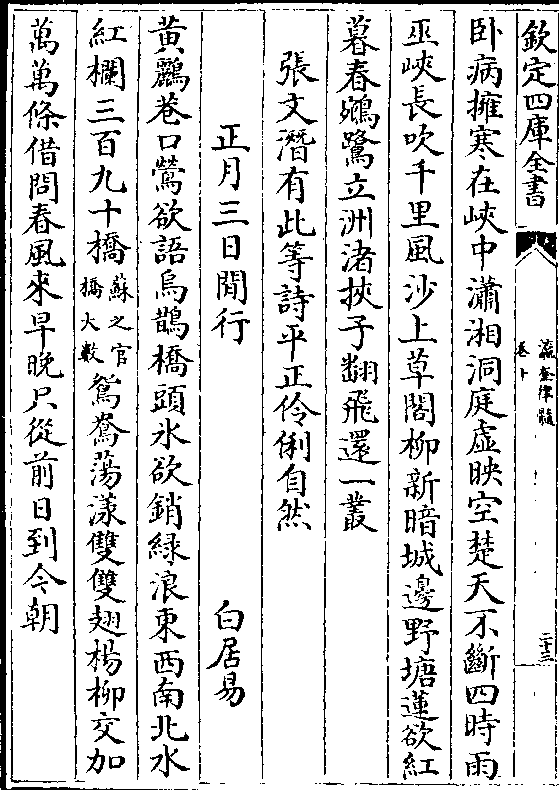 欽定四庫全書
瀛奎律髓
卷十
二十三
卧病擁寒在峽中瀟湘洞庭虛映空楚天不斷四時雨
巫峽長吹千里風沙上草閣柳新暗城邊野塘蓮欲紅
暮春鵷鷺立洲渚挾子翻飛還一叢
張文潛有此等詩平正伶俐自然
正月三日閒行 白居易
黃鸝巷口鶯欲語烏鵲橋頭氷欲銷綠浪東西南北水
紅欄三百九十橋蘇之官橋大數鴛鴦蕩漾雙雙翅楊柳交加
萬萬條借問春風來早晚只從前日到今朝